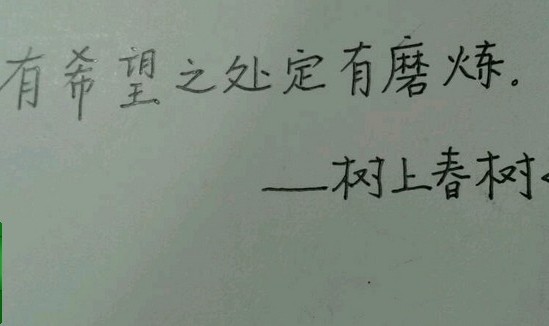 有希望之处定有磨炼。
——树上春树